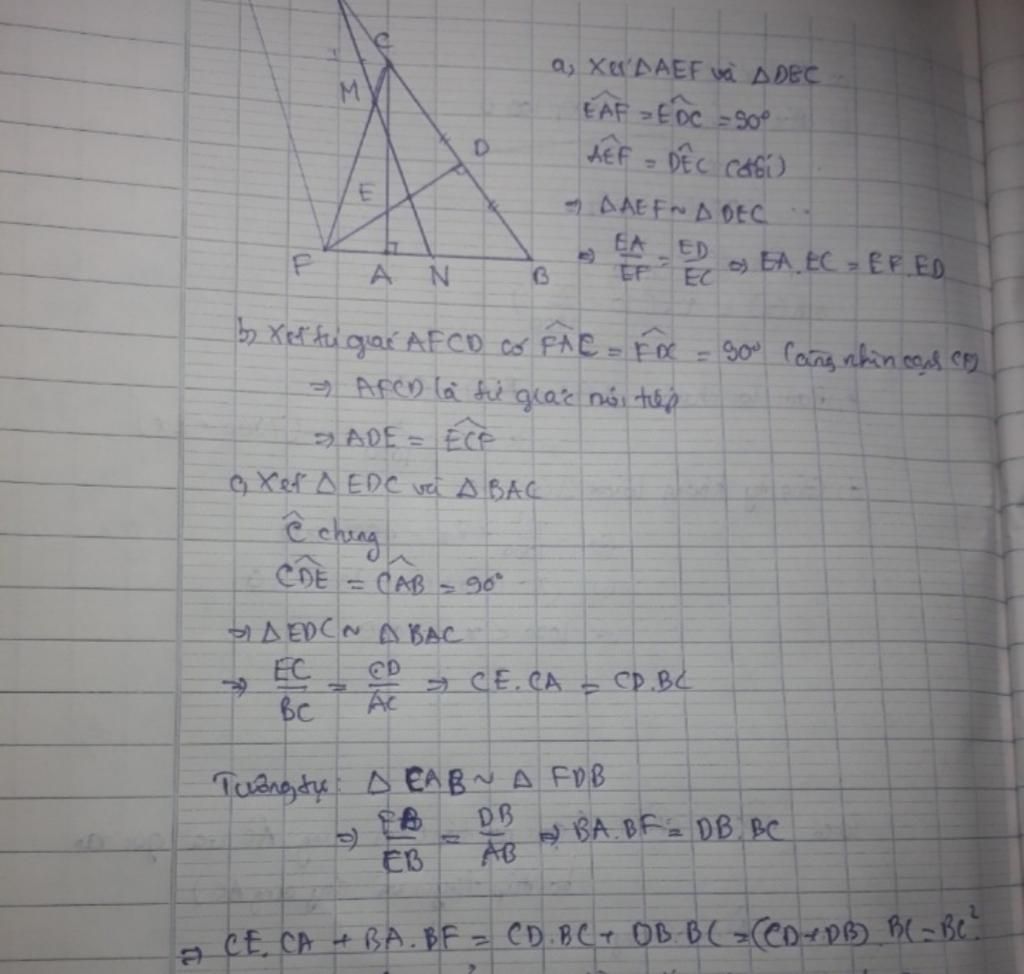 C
M
D
E
F A N B
a, Xét ΔAEF và ΔDEC
\widehat{EAF} = \widehat{EDC} = 90°
\widehat{AEF} = \widehat{DEC} (đối)
⇒ ΔAEF ~ ΔDEC
⇒ \frac{EA}{EF} = \frac{ED}{EC} ⇒ EA.EC = EF.ED
b, Xét tứ giác AFCD có \widehat{FAC} = \widehat{FDC} = 90° (cùng nhìn cạnh CF)
⇒ AFCD là tứ giác nội tiếp
⇒ ADE = \widehat{ECF}
c, Xét ΔEDC và ΔBAC
\widehat{C} chung
\widehat{CDE} = \widehat{CAB} = 90°
⇒ ΔEDC ~ ΔBAC
⇒ \frac{EC}{BC} = \frac{CD}{AC} ⇒ CE.CA = CD.BC
Tương tự: Δ CAB ~ Δ FDB
⇒ \frac{FB}{CB} = \frac{DB}{AB} ⇒ BA.BF = DB.BC
⇒ CE.CA + BA.BF = CD.BC + DB.BC = (CD+DB).BC = BC²